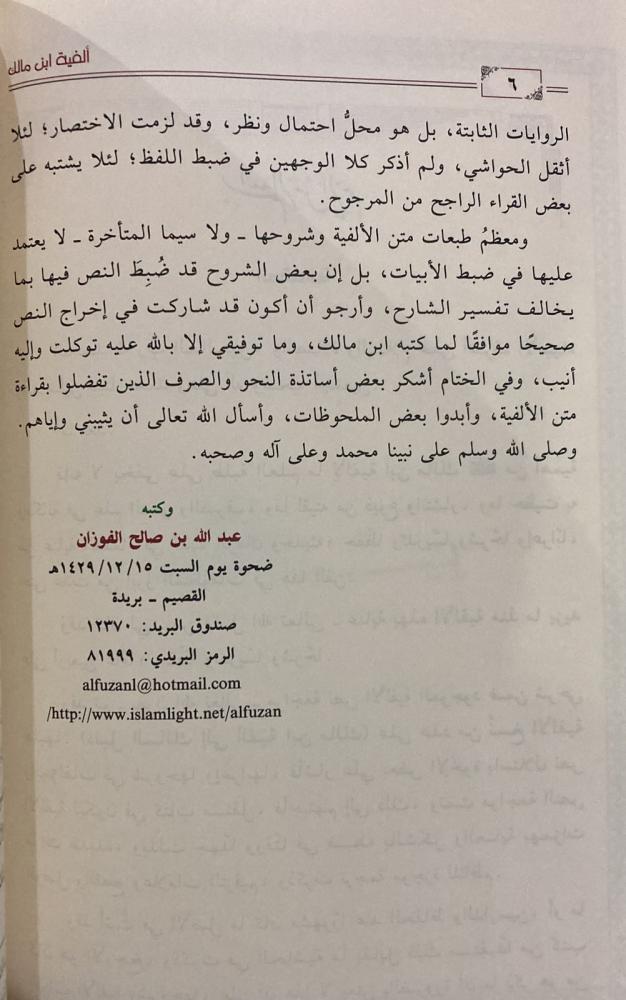 ألفية ابن مالك
٦
الروايات الثابتة، بل هو محلُّ احتمال ونظر، وقد لزمت الاختصار؛ لئلا
أثقل الحواشي، ولم أذكر كلا الوجهين في ضبط اللفظ؛ لئلا يشتبه على
بعض القراء الراجح من المرجوح.
ومعظمُ طبعات متن الألفية وشروحها ـ ولا سيما المتأخرة ـ لا يعتمد
عليها في ضبط الأبيات، بل إن بعض الشروح قد ضُبِطَ النص فيها بما
يخالف تفسير الشارح، وأرجو أن أكون قد شاركت في إخراج النص
صحيحًا موافقًا لما كتبه ابن مالك، وما توفيقي إلا بالله عليه توكلت وإليه
أنيب، وفي الختام أشكر بعض أساتذة النحو والصرف الذين تفضلوا بقراءة
متن الألفية، وأبدوا بعض الملحوظات، وأسأل الله تعالى أن يثيبني وإياهم.
وصلى الله وسلم على نبينا محمد وعلى آله وصحبه.
وكتبه
عبد الله بن صالح الفوزان
ضحوة يوم السبت ١٤٢٩/١٢/١٥هـ
القصيم ـ بريدة
صندوق البريد: ١٢٣٧٠
الرمز البريدي: ٨١٩٩٩
alfuzanl@hotmail.com
/http://www.islamlight.net/alfuzan